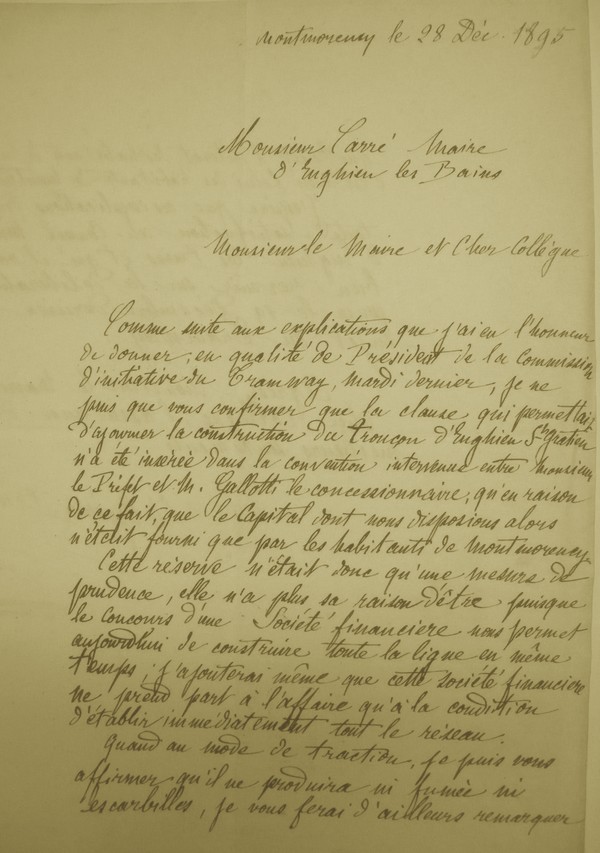 Montmorency le 28 Déc. 1895
Monsieur Carré Maire
d'Enghien les Bains
Monsieur le Maire et Cher Collègue
Comme suite aux explications que j'ai eu l'honneur
de donner, en qualité de Président de la Commission
d'initiative du Tramway, Mardi dernier, je ne
puis que vous confirmer que la clause qui permettait
d'ajourner la construction du tronçon d'Enghien St Gratien
n'a été insérée dans la convention intervenue entre Monsieur
le Préfet et M. Gallotti le concessionnaire, qu'en raison
de ce fait, que le Capital dont nous disposions alors
n'était fourni que par les habitants de Montmorency.
Cette réserve n'était donc qu'une mesure de
prudence, elle n'a plus sa raison d'être puisque
le concours d'une Société financiere nous permet
aujourd'hui de construire toute la ligne en même
temps; j'ajouterai même que cette Société financiere
ne prend part à l'affaire qu'à la condition
d'établir immédiatement tout le réseau.
Quand au mode de traction, je puis vous
affirmer qu'il ne produira ni fumée ni
escarbilles, je vous ferai d'ailleurs remarquer